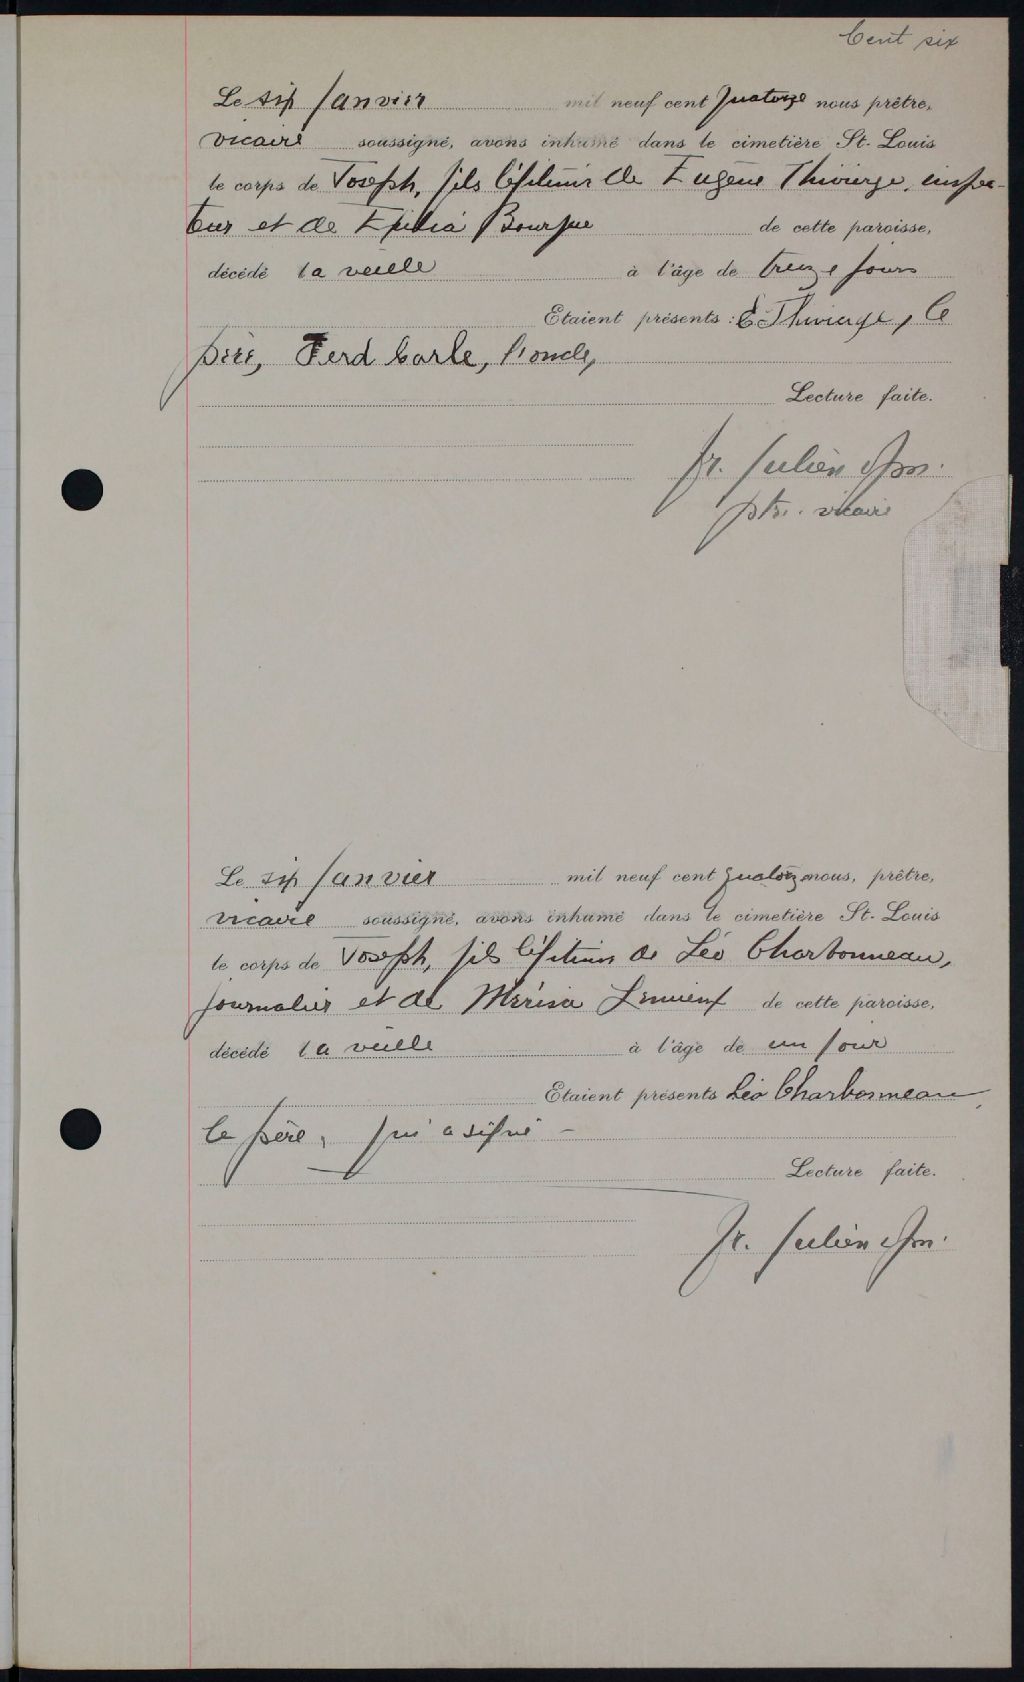 Cent six
Le six Janvier mil neuf cent quatorze nous prêtre,
vicaire soussigné, avons inhumé dans le cimetière St. Louis
le corps de Joseph, fils légitime de Eugène Thivierge, inspec-
teur et de Bourque de cette paroisse,
décédé la veille à l'âge de treize jours
Etaient présents : E. Thivierge, le
père, Ferd Carle, l'oncle,
Lecture faite.
fr. Julien ofm.
ptr. vicaire
Le six Janvier mil neuf cent quatorze nous, prêtre,
vicaire soussigné, avons inhumé dans le cimetière St. Louis
le corps de Joseph, fils légitime de Léo Charbonneau,
journalier et de Merisa Lemieux de cette paroisse,
décédé la veille à l'âge de un jour
Etaient présents Léo Charbonneau,
le père, qui a signé -
Lecture faite.
fr. Julien ofm.